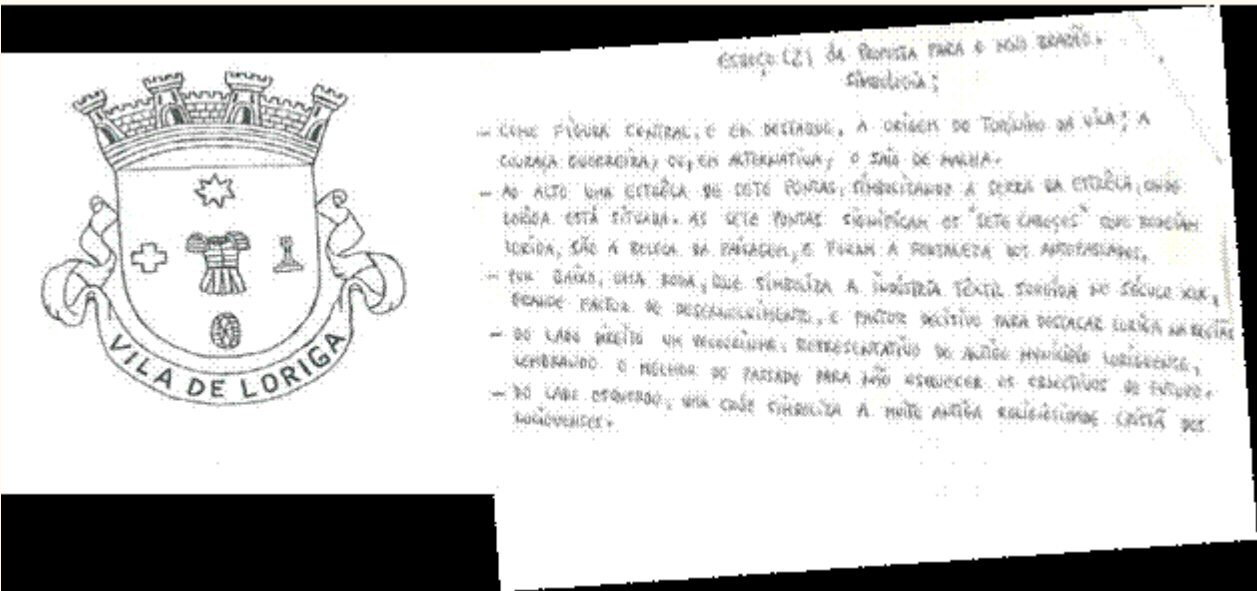 VILA DE LORIGA
ESBOÇO (2) DA PROPOSTA PARA O NOVO BRASÃO.
SIMBOLOGIA:
— COMO FIGURA CENTRAL, E EM DESTAQUE, A ORIGEM DO TOPÓNIMO DA VILA; A
COURAÇA GUERREIRA, OU, EM ALTERNATIVA, O SAIO DE MALHA.
— AO ALTO UMA ESTRÊLA DE SETE PONTAS, SIMBOLIZANDO A SERRA DA ESTRÊLA, ONDE
LORIGA ESTÁ SITUADA. AS SETE PONTAS SIGNIFICAM OS "SETE CABEÇOS" QUE RODEIAM
LORIGA, SÃO A BELEZA DA PAISAGEM, E FORAM A FORTALEZA DOS ANTEPASSADOS.
— POR BAIXO, UMA RODA, QUE SIMBOLIZA A INDÚSTRIA TÊXTIL SURGIDA NO SÉCULO XIX,
GRANDE FACTOR DE DESENVOLVIMENTO, E FACTOR DECISIVO PARA DESTACAR LORIGA NA REGIÃO
— DO LADO DIREITO UM PELOURINHO, REPRESENTATIVO DO ANTIGO MUNICÍPIO LORIGUENSE,
LEMBRANDO O MELHOR DO PASSADO PARA NÃO ESQUECER OS OBJECTIVOS DE FUTURO.
— DO LADO ESQUERDO, UMA CRUZ SIMBOLIZA A MUITO ANTIGA RELIGIOSIDADE CRISTÃ DOS
LORIGUENSES.